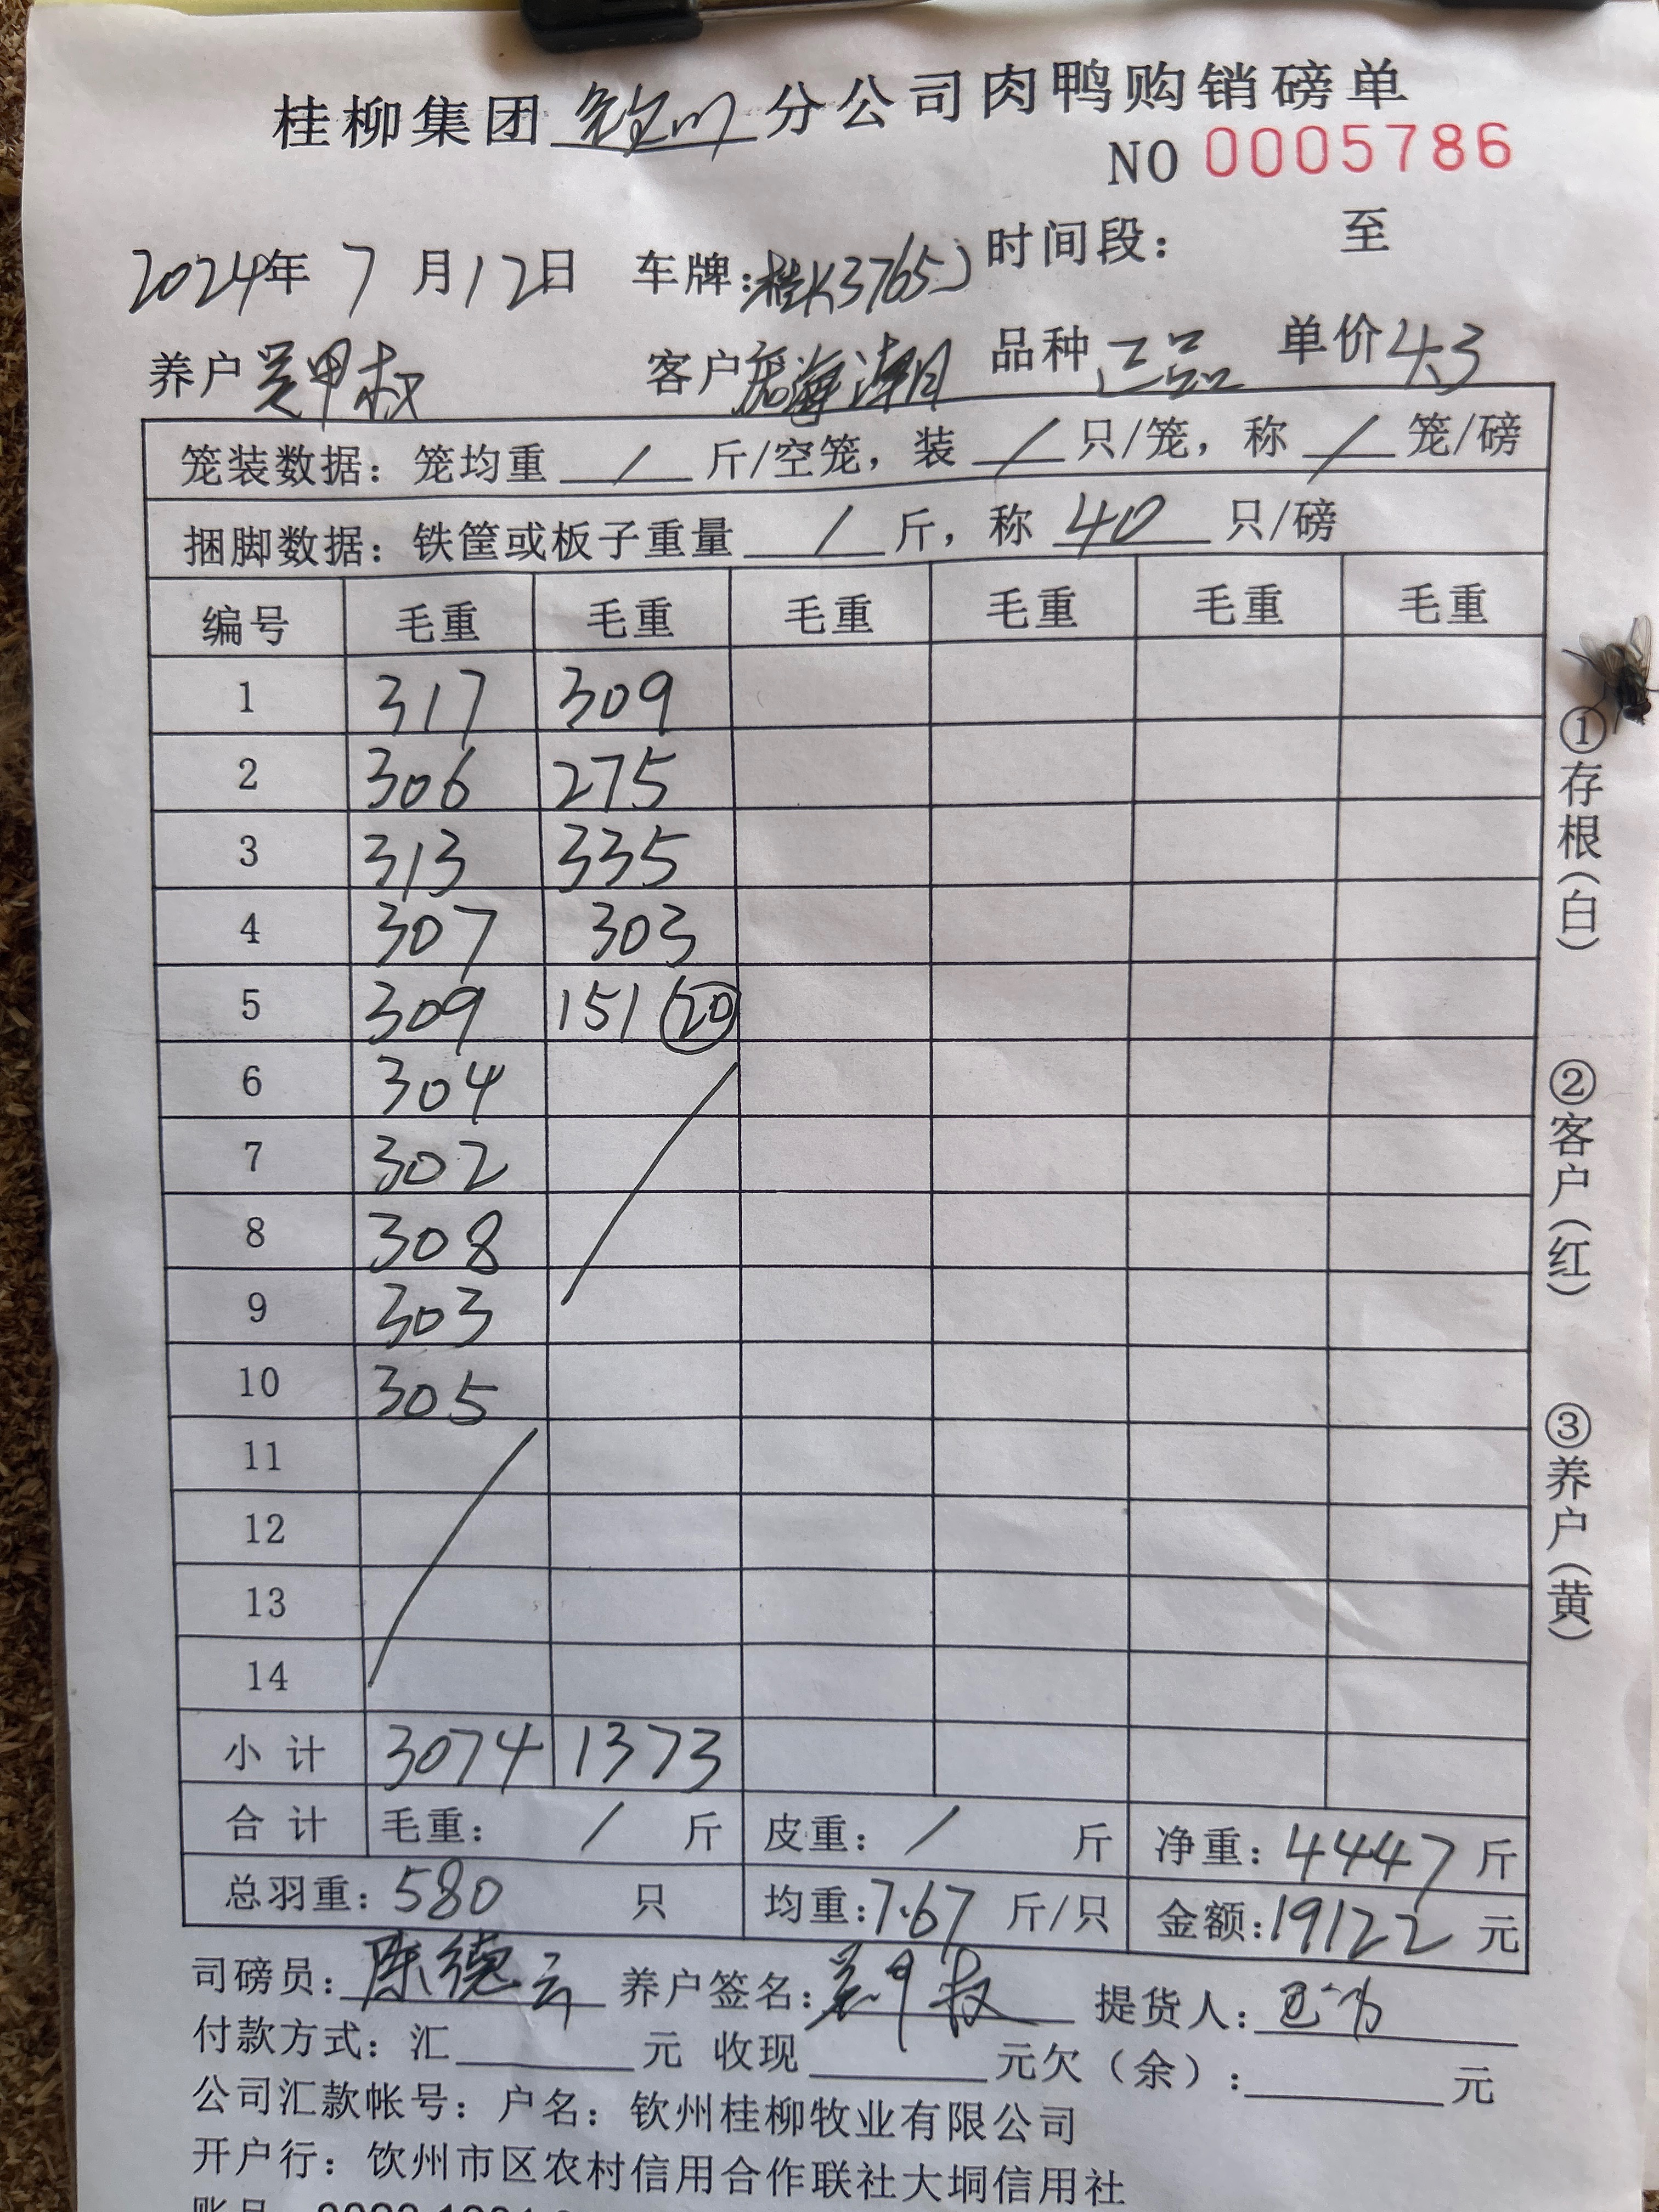 桂柳集团 钦州 分公司肉鸭购销磅单
NO 0005786
2024年 7 月12日 车牌:桂K3765J 时间段: 至
养户 吴甲权 客户 海潮 品种 正品 单价 4.3
笼装数据:笼均重 / 斤/空笼,装 / 只/笼,称 / 笼/磅
捆脚数据:铁筐或板子重量 / 斤,称 40 只/磅
编号 毛重 毛重 毛重 毛重 毛重 毛重
1 317 309
2 306 275
3 313 335
4 307 303
5 309 151 20
6 304
7 302
8 308
9 303
10 305
11
12
13
14
小计 3074 1373
合计 毛重: / 斤 皮重: / 斤 净重:4447 斤
总羽重:580 只 均重:7.67 斤/只 金额:19122 元
司磅员:陈德云 养户签名:吴甲权 提货人:
付款方式:汇 元 收现 元欠(余): 元
公司汇款帐号:户名:钦州桂柳牧业有限公司
开户行:钦州市区农村信用合作联社大垌信用社
①存根(白)
②客户(红)
③养户(黄)